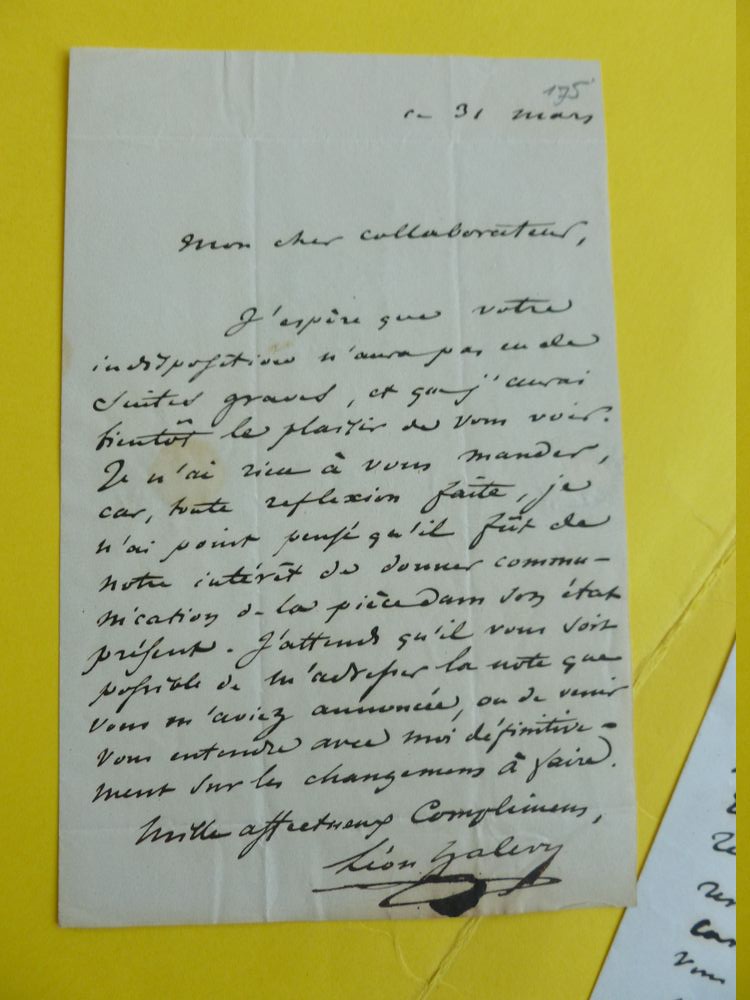 175
ce 31 mars
Mon cher collaborateur,
J'espère que votre
indisposition n'aura pas eu de
suites graves, et que j'aurai
bientôt le plaisir de vous voir.
Je n'ai rien à vous mander,
car, toute reflexion faite, je
n'ai point pensé qu'il fût de
notre intérêt de donner commu-
nication de la pièce dans son état
présent. J'attends qu'il vous soit
possible de m'adresser la note que
vous m'aviez annoncée, ou de venir
vous entendre avec moi définitive-
ment sur les changemens à faire.
Mille affectueux Complimens,
Léon Halevy